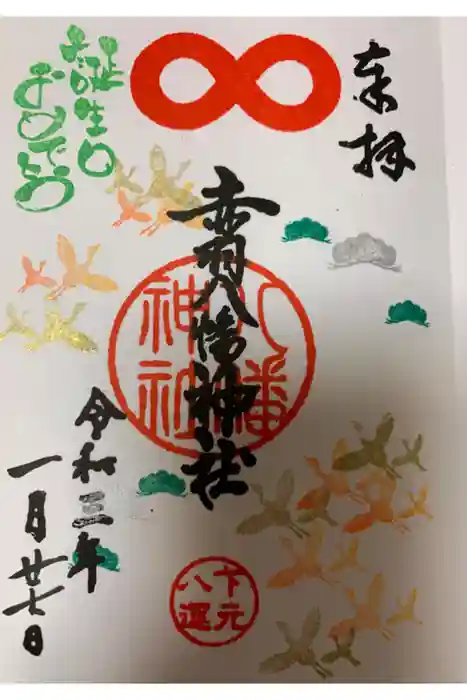 奉拝
赤羽八幡神社
八幡
神社
下元
八運
令和三年
一月廿七日
誕生日
おめでとう